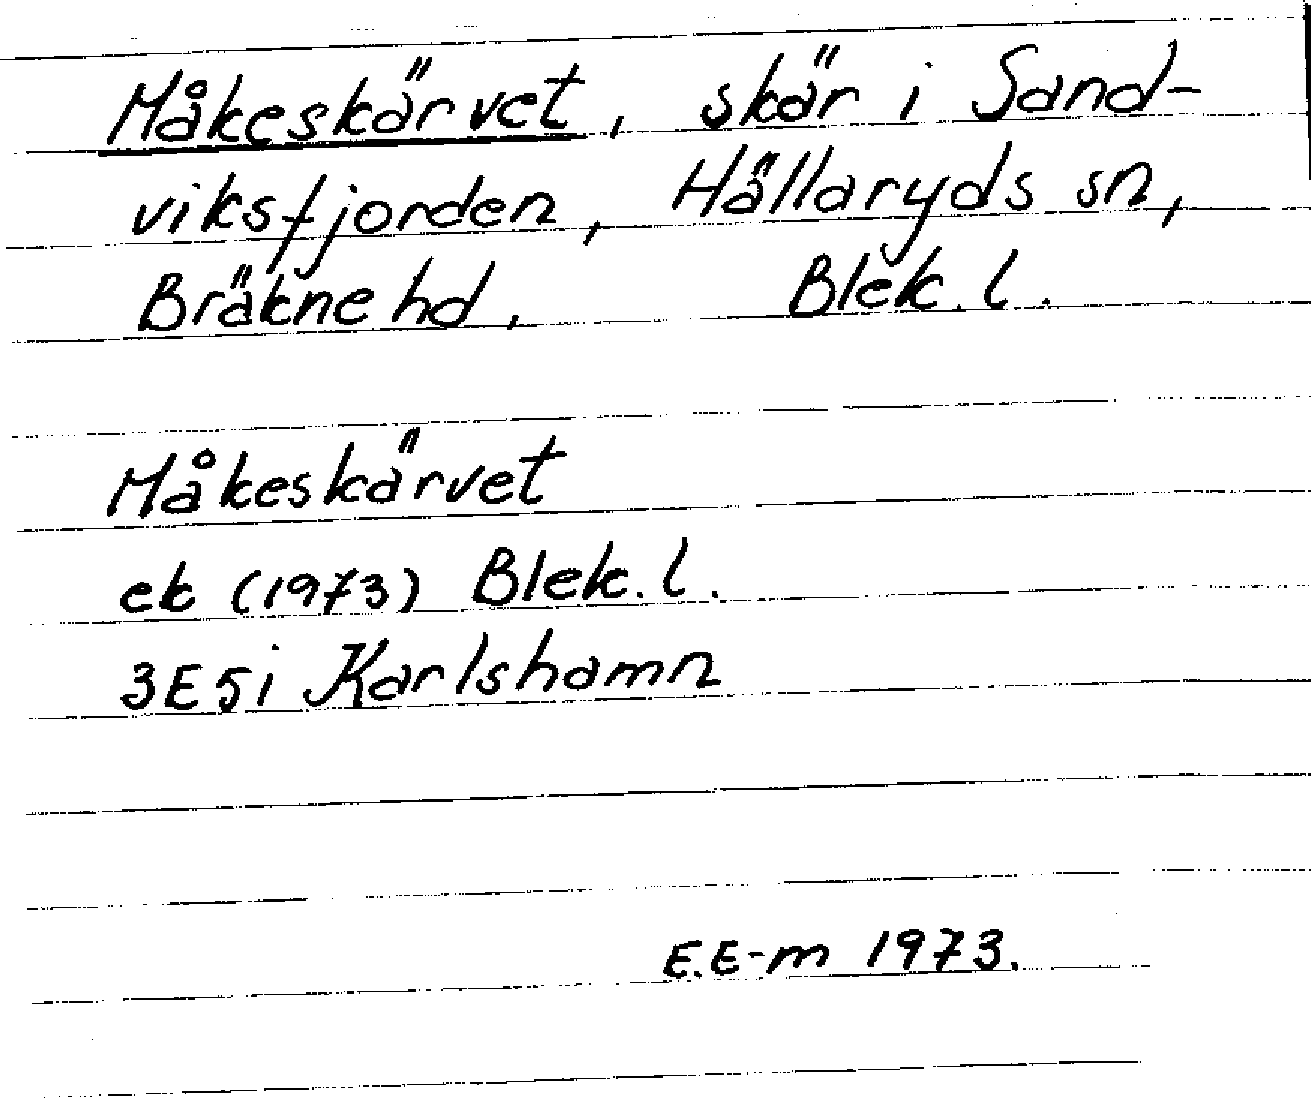 Måkeskärvet, skär i Sand-
viksfjorden, Hällaryds sn,
Bräkne hd, Blek. l.
Måkeskärvet
ek (1973) Blek. l.
3E5i Karlshamn
E.E-m 1973.